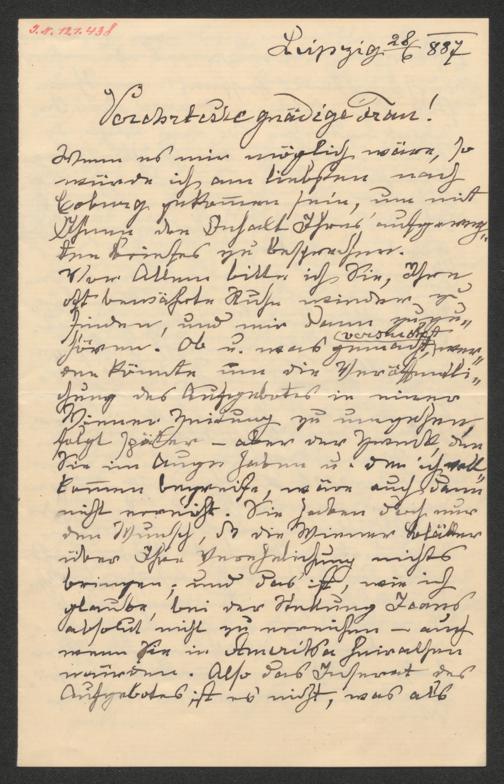 I.N. 121.438
Leipzig 28/6 887
Verehrteste gnädige Frau!
Wenn es mir möglich wäre, so
würde ich am liebsten nach
Coburg gekommen sein, um mit
Ihnen den Inhalt Ihres aufgereg-
ten Briefes zu besprechen.
Vor Allem bitte ich Sie, Ihre
oft bewährte Ruhe wieder zu
finden, und mir dann zuzu-
hören. Ob u. was versucht
gemacht, wer-
den könnte um die Veröffentli-
chung des Aufgebotes in einer
Wiener Zeitung zu umgehen
folgt später – aber der Zweck, den
Sie im Auge haben u. den ich voll-
kommen begreife, wäre auch dann
nicht erreicht. Sie haben doch nur
den Wunsch, dß die Wiener Blätter
über Ihre Verehelichung nichts
bringen; und das ist, wie ich
glaube, bei der Stellung Jeans
absolut nicht zu erreichen – auch
wenn Sie in Amerika heirathen
würden. Also das Inserat des
Aufgebotes ist es nicht, was als